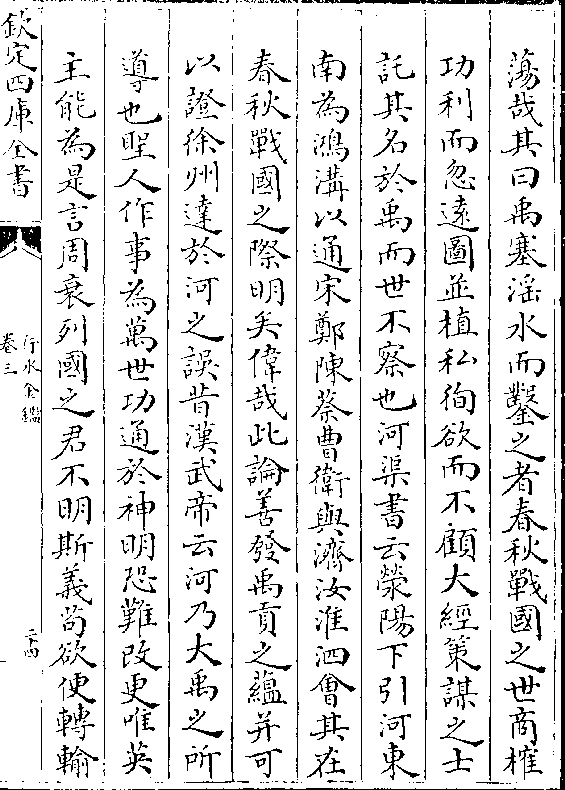 蕩哉其曰禹塞滛水而鑿之者春秋戰國之世商榷
功利而忽遠圖並植私徇欲而不顧大經策謀之士
託其名於禹而世不察也河渠書云滎陽下引河東
南為鴻溝以通宋鄭陳蔡曹衛與濟汝淮泗會其在
春秋戰國之際明矣偉哉此論善發禹貢之蘊并可
以證徐州達於河之誤昔漢武帝云河乃大禹之所
導也聖人作事為萬世功通於神明恐難改更唯英
主能為是言周衰列國之君不明斯義茍欲便轉輸
欽定四庫全書
行水金鑑
卷三
二十四